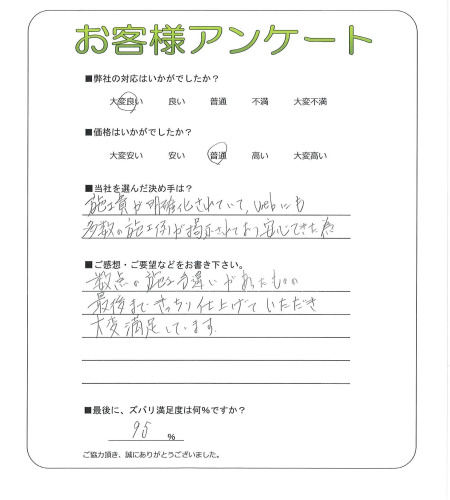 お客様アンケート
■弊社の対応はいかがでしたか？
大変良い 良い 普通 不満 大変不満
■価格はいかがでしたか？
大変安い 安い 普通 高い 大変高い
■当社を選んだ決め手は？
施工費が明確化されていて、webにも
多数の施工例が掲示されており安心できた為
■ご感想・ご要望などをお書き下さい。
数点の施工違いがあったものの
最後まできっちり仕上げていただき
大変満足しています
■最後に、ズバリ満足度は何％ですか？
95 ％
ご協力頂き、誠にありがとうございました。